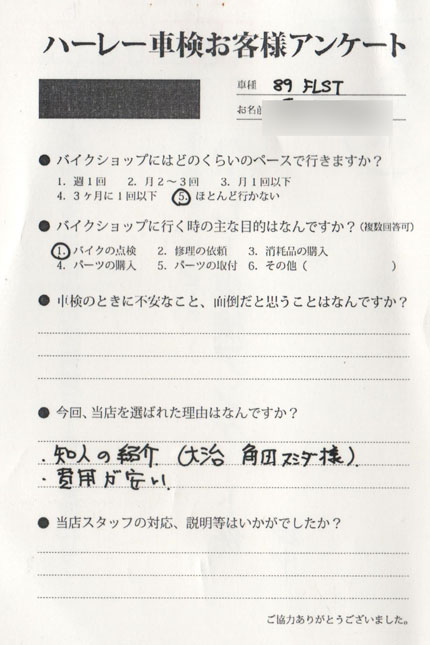 ハーレー車検お客様アンケート
車種 89 FLST
お名前
● バイクショップにはどのくらいのペースで行きますか？
1. 週1回 2. 月2～3回 3. 月1回以下
4. 3ヶ月に1回以下 5. ほとんど行かない
● バイクショップに行く時の主な目的はなんですか？(複数回答可)
1. バイクの点検 2. 修理の依頼 3. 消耗品の購入
4. パーツの購入 5. パーツの取付 6. その他 ( )
● 車検のときに不安なこと、面倒だと思うことはなんですか？
● 今回、当店を選ばれた理由はなんですか？
・知人の紹介 (大治 角田スミダ様)
・費用が安い。
● 当店スタッフの対応、説明等はいかがでしたか？
ご協力ありがとうございました。